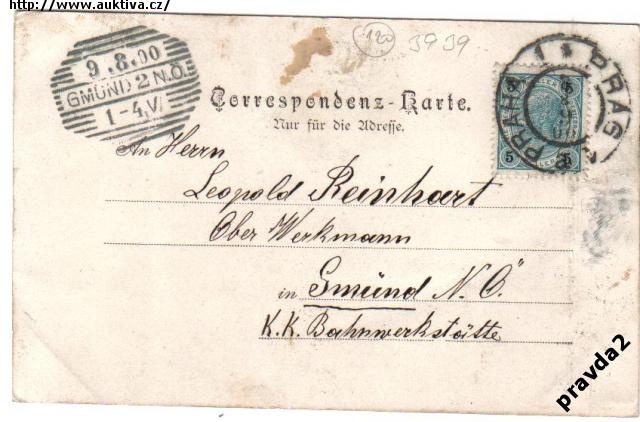 http://www.auktiva.cz/
120
3939
9.8.00
GMÜND 2 N.Ö.
1-4.V.
PRAG
PRAHA
1
5 5
5 5
Correspondenz-Karte.
Nur für die Adresse.
An Herrn
Leopold Reinhart
Ober Werkmann
in Gmünd N. Ö.
K.K. Bahnwerkstätte
pravda2